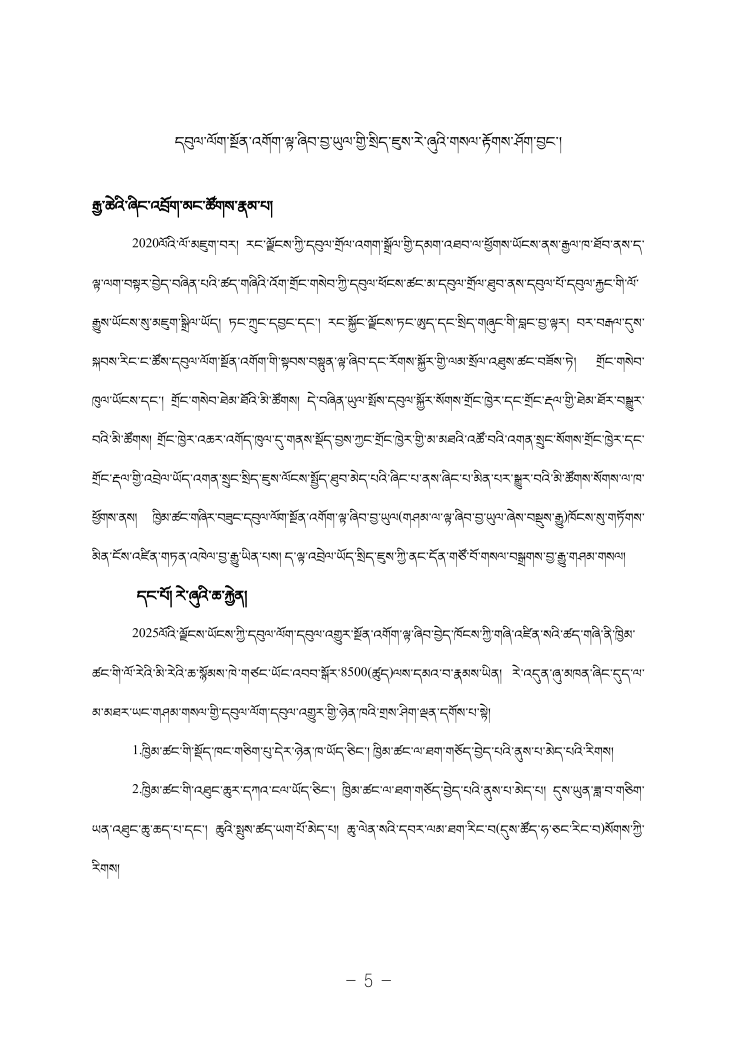 དབུལ་ལོག་སྔོན་འགོག་ལྟ་ཞིབ་བྱ་ཡུལ་གྱི་སྲིད་ཇུས་རེ་ཞུའི་གསལ་རྟོགས་ཤོག་བྱང་།
རྒྱ་ཆེའི་ཞིང་འབྲོག་མང་ཚོགས་རྣམ་པ།
2020ལོའི་ལོ་མཇུག་བར། རང་ལྗོངས་ཀྱི་དབུལ་གྲོལ་འགག་སྒྲོལ་གྱི་དམག་འཐབ་ལ་ཕྱོགས་ཡོངས་ནས་རྒྱལ་ཁ་ཐོབ་ནས་ད་
ལྟ་ལག་བསྟར་བྱེད་བཞིན་པའི་ཚད་གཞིའི་འོག་གྲོང་གསེབ་ཀྱི་དབུལ་ཕོངས་ཚང་མ་དབུལ་གྲོལ་ཐུབ་ནས་དབུལ་པོ་དབུལ་རྐྱང་གི་ལོ་
རྒྱུས་ཡོངས་སུ་མཇུག་སྒྲིལ་ཡོད། ཏང་ཀྲུང་དབྱང་དང་། རང་སྐྱོང་ལྗོངས་ཏང་ཨུད་དང་སྲིད་གཞུང་གི་བླང་བྱ་ལྟར། བར་བརྒལ་དུས་
སྐབས་རིང་ང་ཚོས་དབུལ་ལོག་སྔོན་འགོག་གི་སྟབས་བསྟུན་ལྟ་ཞིབ་དང་རོགས་སྐྱོར་གྱི་ལམ་སྲོལ་འཐུས་ཚང་བཟོས་ཏེ། གྲོང་གསེབ་
ཁུལ་ཡོངས་དང་། གྲོང་གསེབ་ཐེམ་ཐོའི་མི་ཚོགས། དེ་བཞིན་ཡུལ་སྤོས་དབུལ་སྐྱོར་སོགས་གྲོང་ཁྱེར་དང་གྲོང་རྡལ་གྱི་ཐེམ་ཐོར་བསྒྱུར་
བའི་མི་ཚོགས། གྲོང་ཁྱེར་འཆར་འགོད་ཁུལ་དུ་གནས་སྡོད་བྱས་ཀྱང་གྲོང་ཁྱེར་གྱི་མ་མཐའི་འཚོ་བའི་འགན་སྲུང་སོགས་གྲོང་ཁྱེར་དང་
གྲོང་རྡལ་གྱི་འབྲེལ་ཡོད་འགན་སྲུང་སྲིད་ཇུས་ལོངས་སྤྱོད་ཐུབ་མེད་པའི་ཞིང་པ་ནས་ཞིང་པ་མིན་པར་སྒྱུར་བའི་མི་ཚོགས་སོགས་ལ་ཁ་
ཕྱོགས་ནས། ཁྱིམ་ཚང་གཞིར་བཟུང་དབུལ་ལོག་སྔོན་འགོག་ལྟ་ཞིབ་བྱ་ཡུལ(གཤམ་ལ་ལྟ་ཞིབ་བྱ་ཡུལ་ཞེས་བསྡུས་རྒྱུ)ཁོངས་སུ་གཏོགས་
མིན་ངོས་འཛིན་གཏན་འཁེལ་བྱ་རྒྱུ་ཡིན་པས། ད་ལྟ་འབྲེལ་ཡོད་སྲིད་ཇུས་ཀྱི་ནང་དོན་གཙོ་བོ་གསལ་བསྒྲགས་བྱ་རྒྱུ་གཤམ་གསལ།
དང་པོ། རེ་ཞུའི་ཆ་རྐྱེན།
2025ལོའི་ལྗོངས་ཡོངས་ཀྱི་དབུལ་ལོག་དབུལ་འགྱུར་སྔོན་འགོག་ལྟ་ཞིབ་བྱེད་ཁོངས་ཀྱི་གཞི་འཛིན་སའི་ཚད་གཞི་ནི་ཁྱིམ་
ཚང་གི་ལོ་རེའི་མི་རེའི་ཆ་སྙོམས་ཁེ་གཙང་ཡོང་འབབ་སྒོར་8500(ཚུད)ལས་དམའ་བ་རྣམས་ཡིན། རེ་འདུན་ཞུ་མཁན་ཞིང་དུད་ལ་
མ་མཐར་ཡང་གཤམ་གསལ་གྱི་དབུལ་ལོག་དབུལ་འགྱུར་གྱི་ཉེན་ཁའི་གྲས་ཤིག་ལྡན་དགོས་པ་སྟེ།
1.ཁྱིམ་ཚང་གི་སྡོད་ཁང་གཅིག་པུ་དེར་ཉེན་ཁ་ཡོད་ཅིང་། ཁྱིམ་ཚང་ལ་ཐག་གཅོད་བྱེད་པའི་ནུས་པ་མེད་པའི་རིགས།
2.ཁྱིམ་ཚང་གི་འཐུང་ཆུར་དཀའ་ངལ་ཡོད་ཅིང་། ཁྱིམ་ཚང་ལ་ཐག་གཅོད་བྱེད་པའི་ནུས་པ་མེད་པ། དུས་ཡུན་ཟླ་བ་གཅིག་
ཡན་འཐུང་ཆུ་ཆད་པ་དང་། ཆུའི་སྤུས་ཚད་ཡག་པོ་མེད་པ། ཆུ་ལེན་སའི་དབར་ལམ་ཐག་རིང་བ(དུས་ཚོད་ཧ་ཅང་རིང་བ)སོགས་ཀྱི་
རིགས།
− 5 −